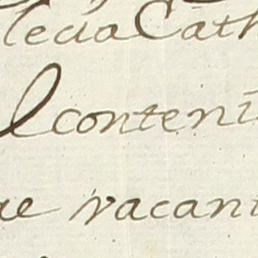 lecia Cath
El conteni
ue vacant